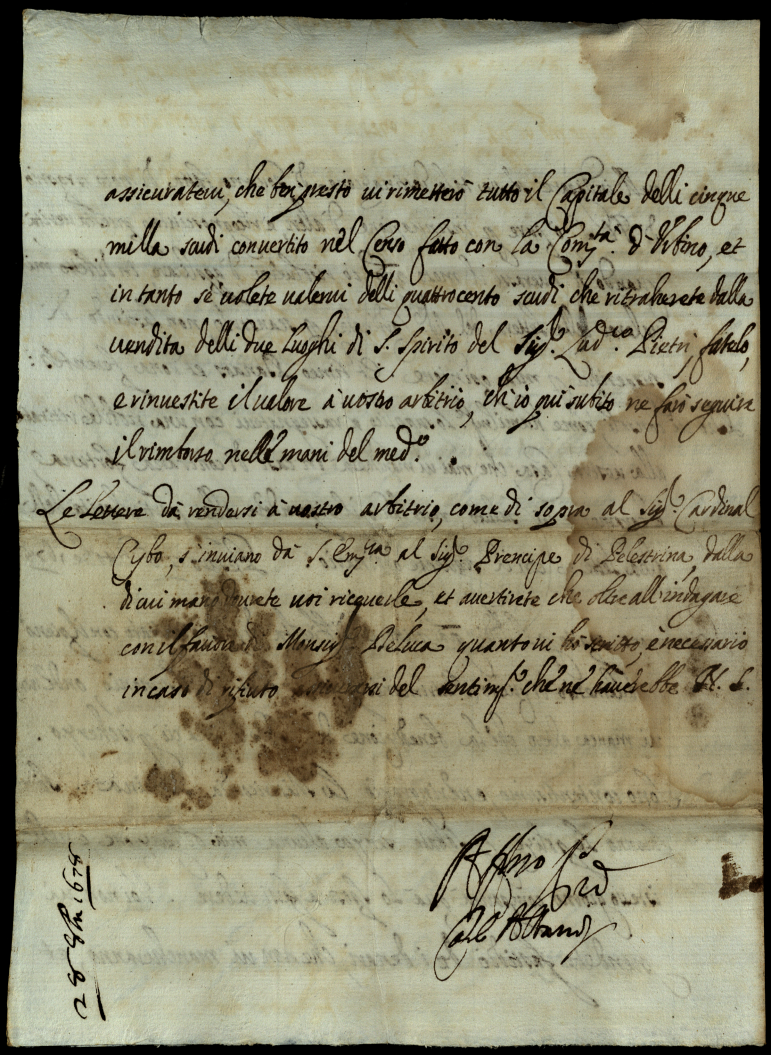 assicuratevi, che ben presto vi rimetterò tutto il Capitale delli cinque
milla scudi convertito nel Censo fatto con la Com.tà d'Urbino, et
in tanto se volete valervi delli quattrocento scudi che ritraherete dalla
vendita delli due luoghi di S. Spirito del Sig.r Lud.co Pietri, fatelo,
e rinvestite il valore à vostro arbitrio, ch'io qui subito ne farò seguire
il rimborso nelle mani del med.o
Le lettere da rendersi à vostro arbitrio, come di sopra al Sig.r Cardinal
Cybo, s'inviano da S. Em.za al Sig.r Prencipe di Pelestrina, dalla
di cui mano dovrete voi riceverle, et avertirete che oltre all'indagare
con il favor di Monsig.r De Luca quanto vi hò scritto, è necessario
in caso di rifiuto del sentim.to che ne haverebbe N. S.
Aff.mo
Carlo Albani
28 8bre 1678